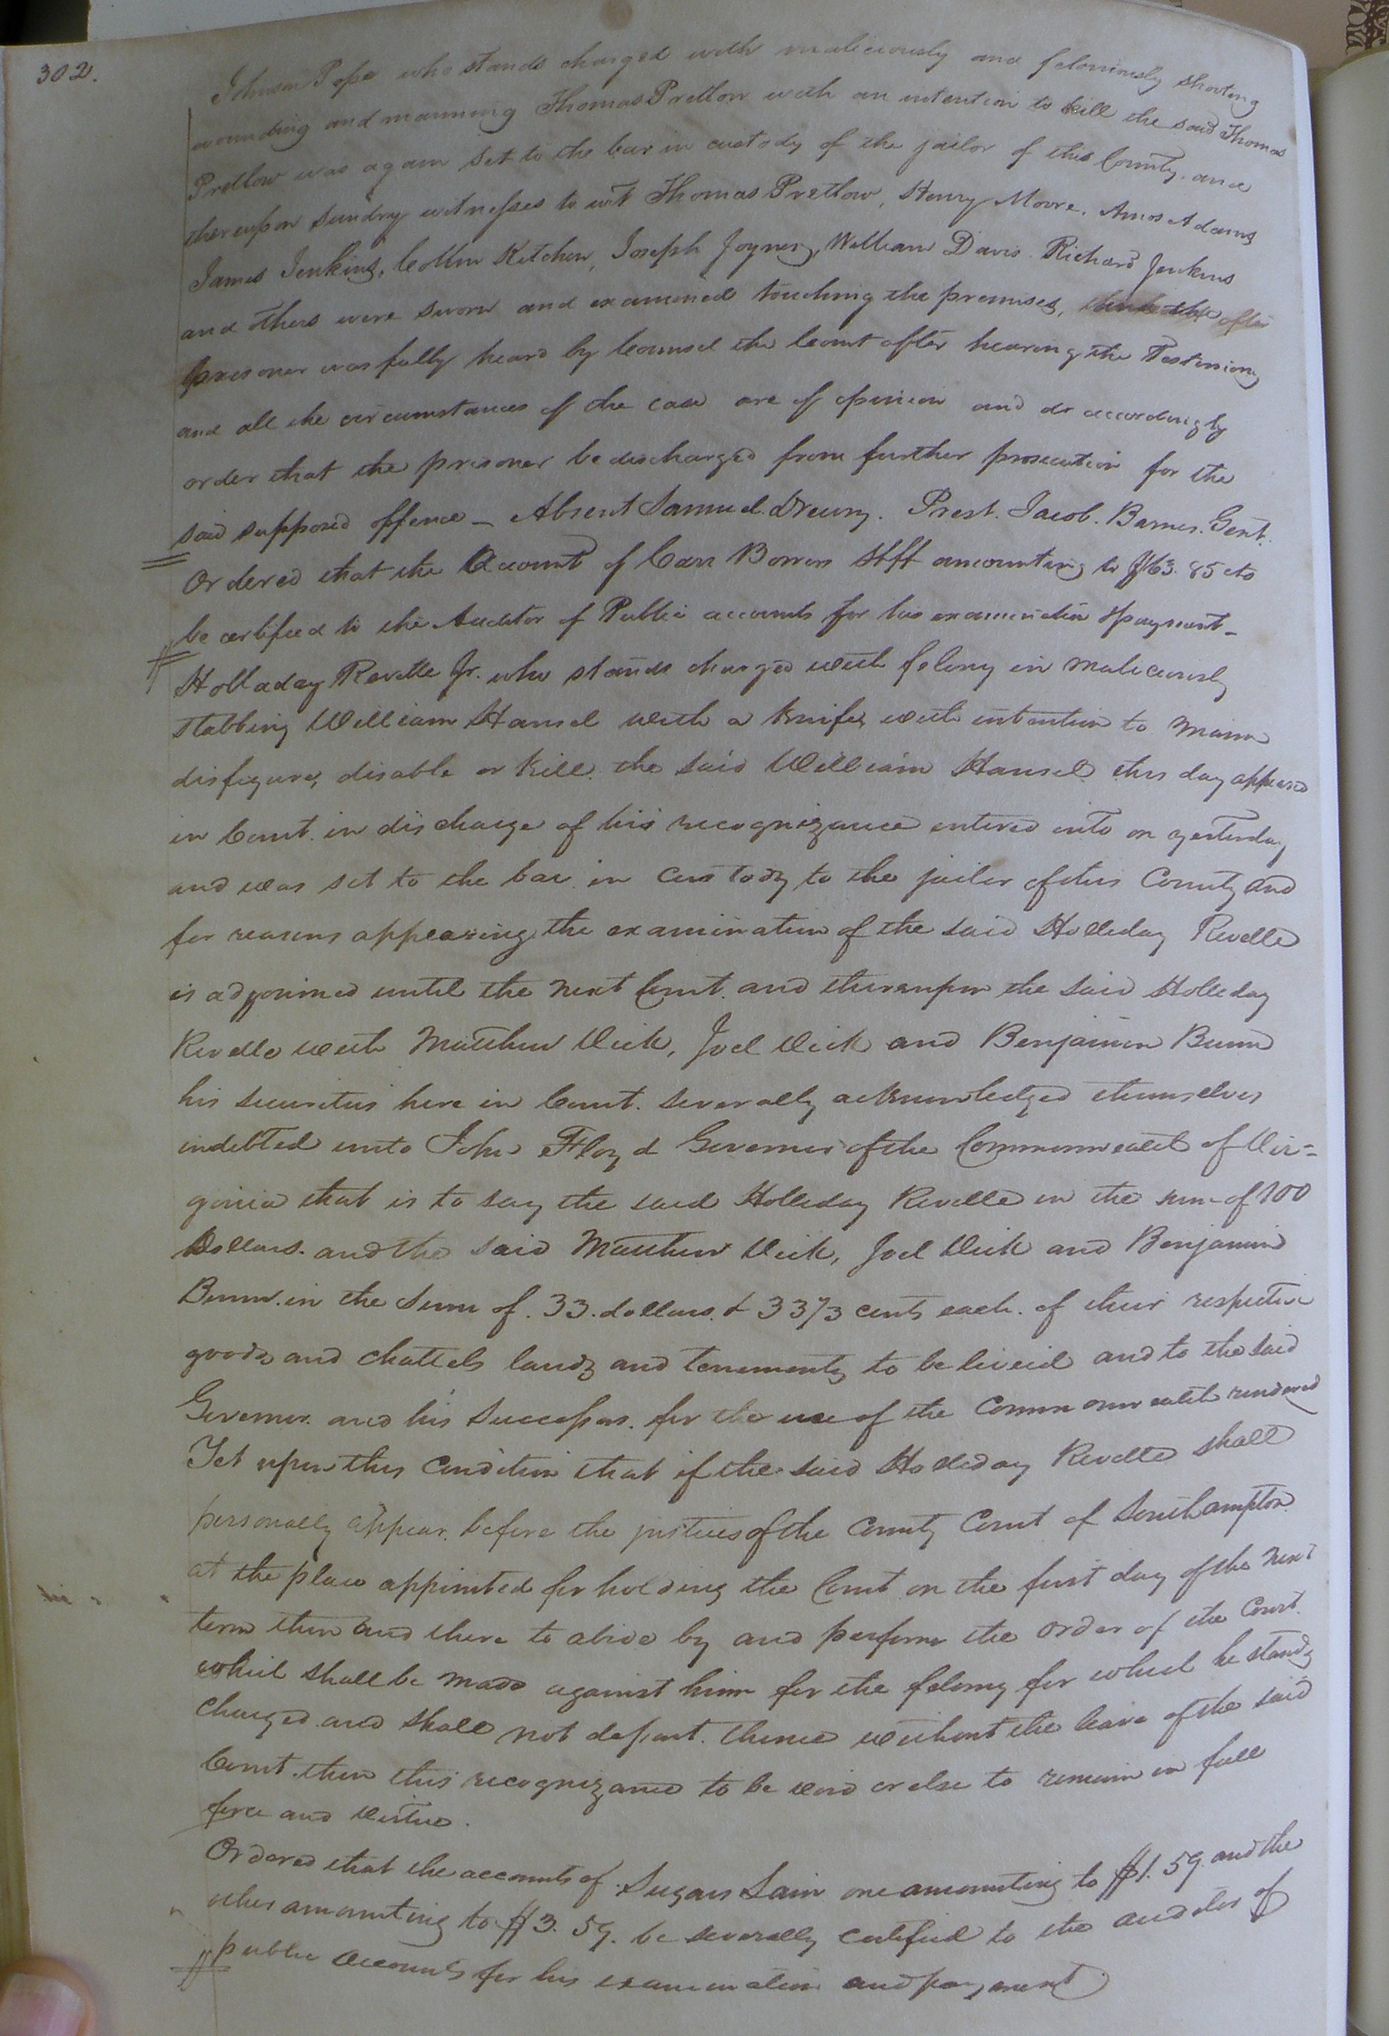 302.
Johnson Pope who stands charged with maliciously and feloniously shooting
wounding and maiming Thomas Pretlow with an intention to kill the said Thomas
Pretlow was again set to the bar in custody of the jailor of this County. and
thereupon sundry witnesses to wit Thomas Pretlow, Henry Moore. Amos Adams
James Jenkins, Collin Kitchen, Joseph Joyner, William Davis. Richard Jenkins
and others were sworn and examined touching the premises, after
prisoner was fully heard by Counsel the Court after hearing the Testimony
and all the circumstances of the case are of opinion and do accordingly
order that the prisoner be discharged from further prosecution for the
said supposed offence — Absent Samuel Drewry. Prest. Jacob. Barnes. Gent.
Ordered that the Account of Carr Bowers Shff amounting to $163.85 cts
be certified to the Auditor of Public accounts for his examination & payment —
Holladay Revelle Jr. who stands charged with felony in maliciously
stabbing William Hansel with a Knife, with intention to Maim
disfigure, disable or kill. the said William Hansel this day appeared
in Court. in discharge of his recognizance entered into on yesterday
and was set to the bar in Custody to the jailor of this County and
for reasons appearing, the examination of the said Holleday Revelle
is adjourned until the next Court. and thereupon the said Holleday
Revelle with Matthew Vick, Joel Vick and Benjamin Bunn
his securities here in Court. severally acknowledged themselves
indebted unto John Floyd Governor of the Commonwealth of Vir=
ginia that is to say the said Holleday Revelle in the sum of 100
Dollars. and the said Matthew Vick, Joel Vick and Benjamin
Bunn. in the Sum of. 33. dollars. & 33 1/3 cents each. of their respective
goods and chattels lands and tenements to be levied and to the said
Governor. and his Successors. for the use of the Commonwealth rendered
Yet upon this Condition that if the said Holleday Revelle shall
personally appear. before the justices of the County Court of Southampton
at the place appointed for holding the Court on the first day of the next
term then and there to abide by and perform the order of the Court.
which shall be made against him for the felony for which he stands
charged. and shall not depart. thence without the leave of the said
Court. then this recognizance to be void or else to remain in full
force and virtue.
Ordered that the accounts of. Sugars Lain one amounting to $1.59. and the
other amounting to $3.59. be severally certified to the auditor of
public accounts for his examination and payment